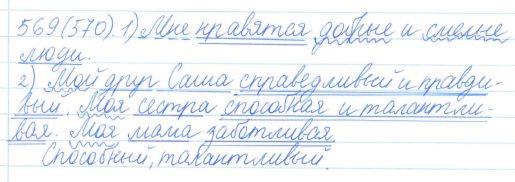 569(570). 1) Мне нравятся добрые и смелые
люди.
2) Мой друг Саша справедливый и правди-
вый. Моя сестра способная и талантли-
вая. Моя мама заботливая.
Способный, талантливый.